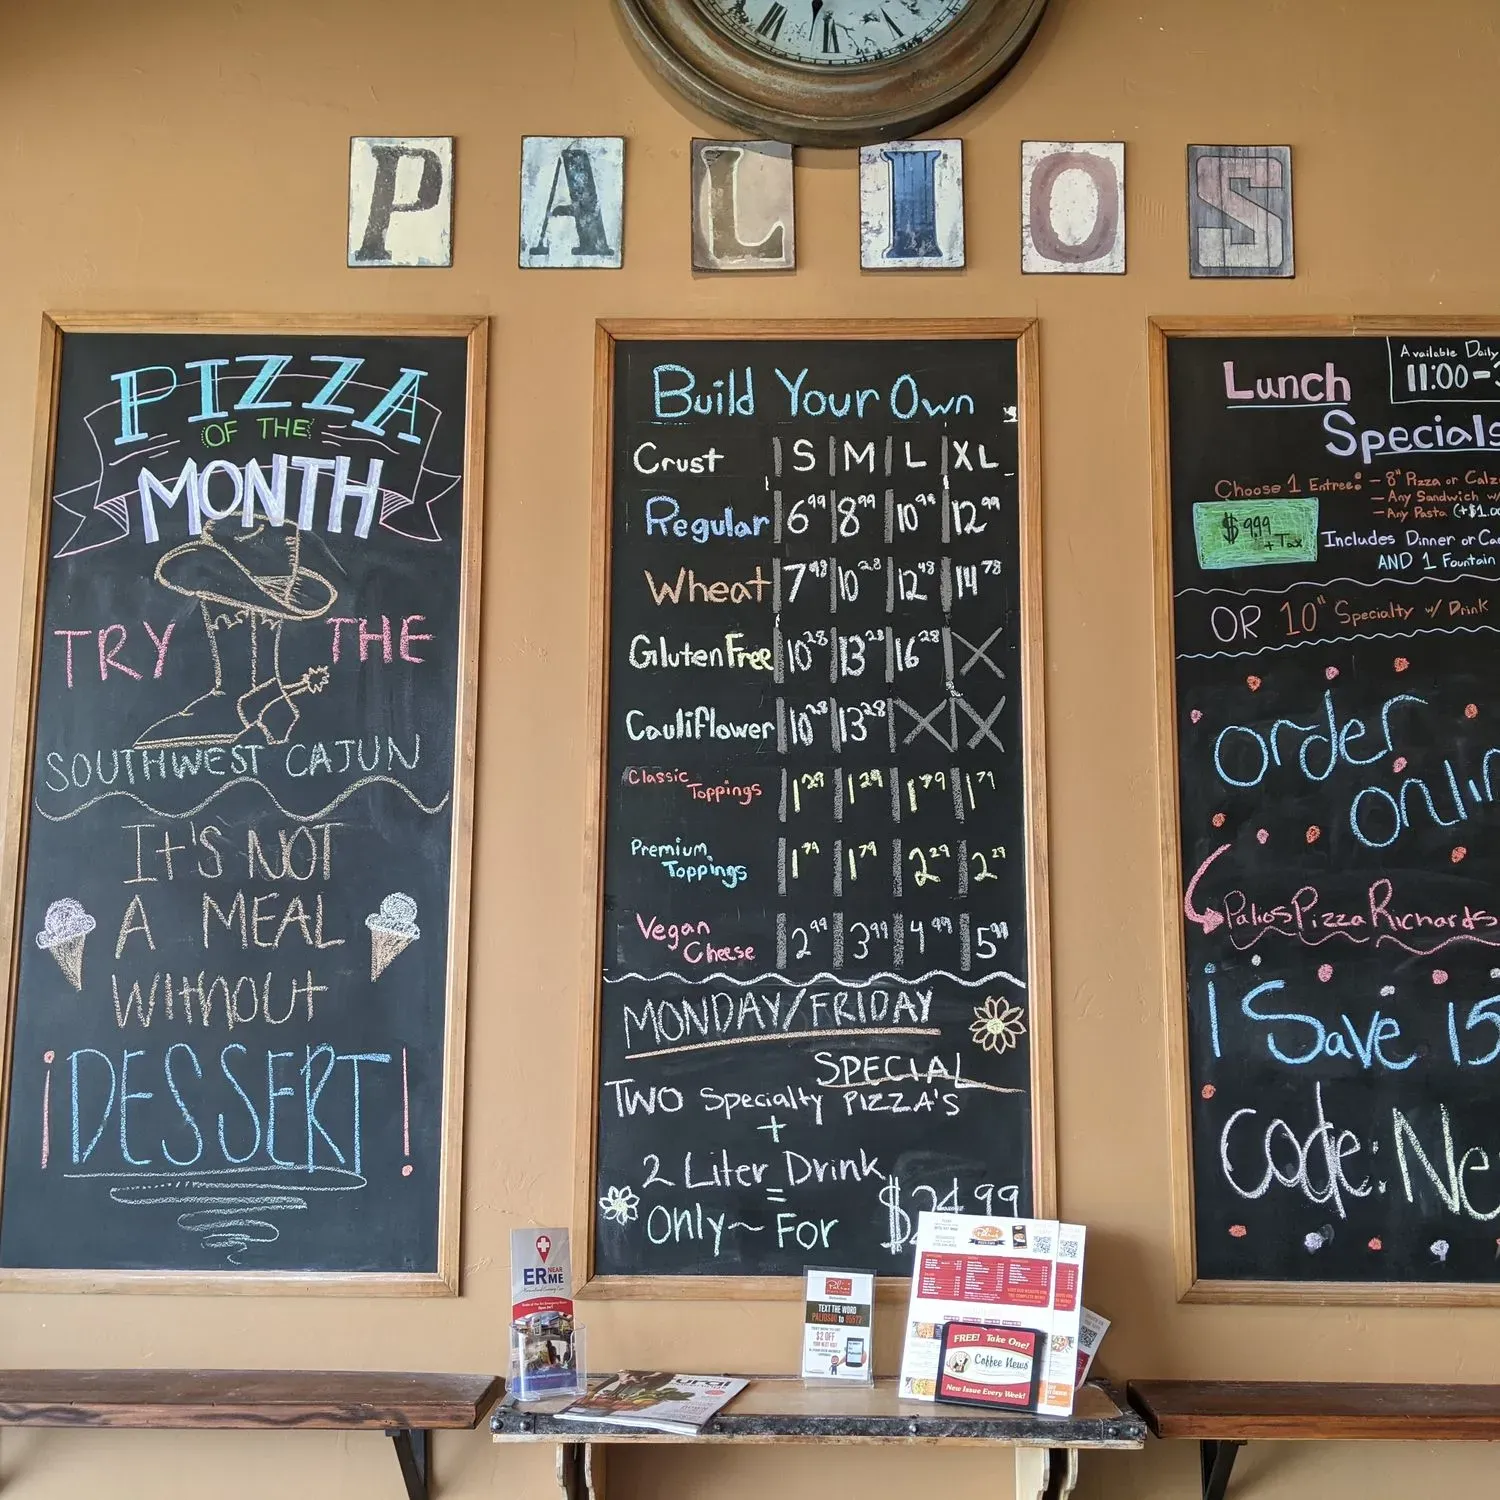 PALIOS
PIZZA
OF THE
MONTH
TRY THE
SOUTHWEST CAJUN
It'S NOT
A MEAL
WitHOUt
¡DESSERT!
Build Your Own
Crust S M L XL
Regular 6.99 8.99 10.99 12.99
Wheat 7.98 10.28 12.48 14.78
Gluten Free 10.28 13.28 16.28 X
Cauliflower 10.28 13.28 X X
Classic Toppings 1.29 1.29 1.79 1.79
Premium Toppings 1.79 1.79 2.29 2.29
Vegan Cheese 2.99 3.99 4.99 5.99
MONDAY/FRIDAY
SPECIAL
TWO Specialty PIZZA'S
+
2 Liter Drink
=
Only~ For $24.99
Lunch
Specials
Available Daily
11:00-
Choose 1 Entree: - 8" Pizza or
- Any Sandwich
- Any Pasta
$9.99 + Tax
Includes Dinner or
AND 1 Fountain
OR 10" Specialty w/ Drink
order
PaliosPizzaRichards
¡Save 15
Code:
ER NEAR ME
Palio's
TEXT THE WORD
$2 OFF
YOUR NEXT VISIT
FREE! Take One!
Coffee News
New Issue Every Week!